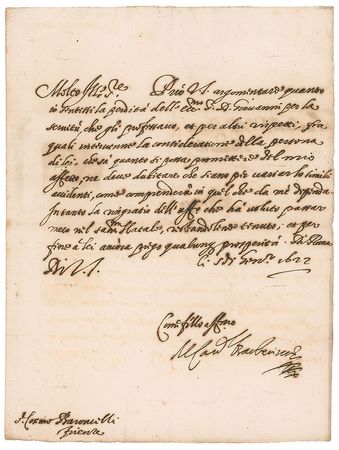 Molto Ill.re
Può V.S. argomentare quanto
io sentissi la perdita dell' Ecc.mo S. D. Giovanni per la
servitù, che gli professavo, et per altri rispetti, fra
quali interviene la consideratione della persona
di lei. che sà quanto si possa promettere del mio
affetto, ne deve dubitare che siano per variarlo simili
accidenti, come comprenderà in quel che da me
Intanto la ringratio dell' che hà voluto passar
meco nel san.mo Natale, restandolene tenuto, et per
fine a lei ancora prego qualunq prosperità. Di Roma
li Gen.ro 1622
Di V.S.
Come fratello aff.mo
Il Card. Barberino
S. Cosimo Baroncelli
Firenze